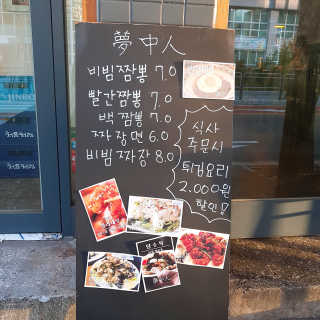 夢中人
비빔짬뽕 7.0
빨간짬뽕 7.0
백짬뽕 7.0
짜장면 6.0
비빔짜장 8.0
식사
주문시
튀김요리
2.000원
할인